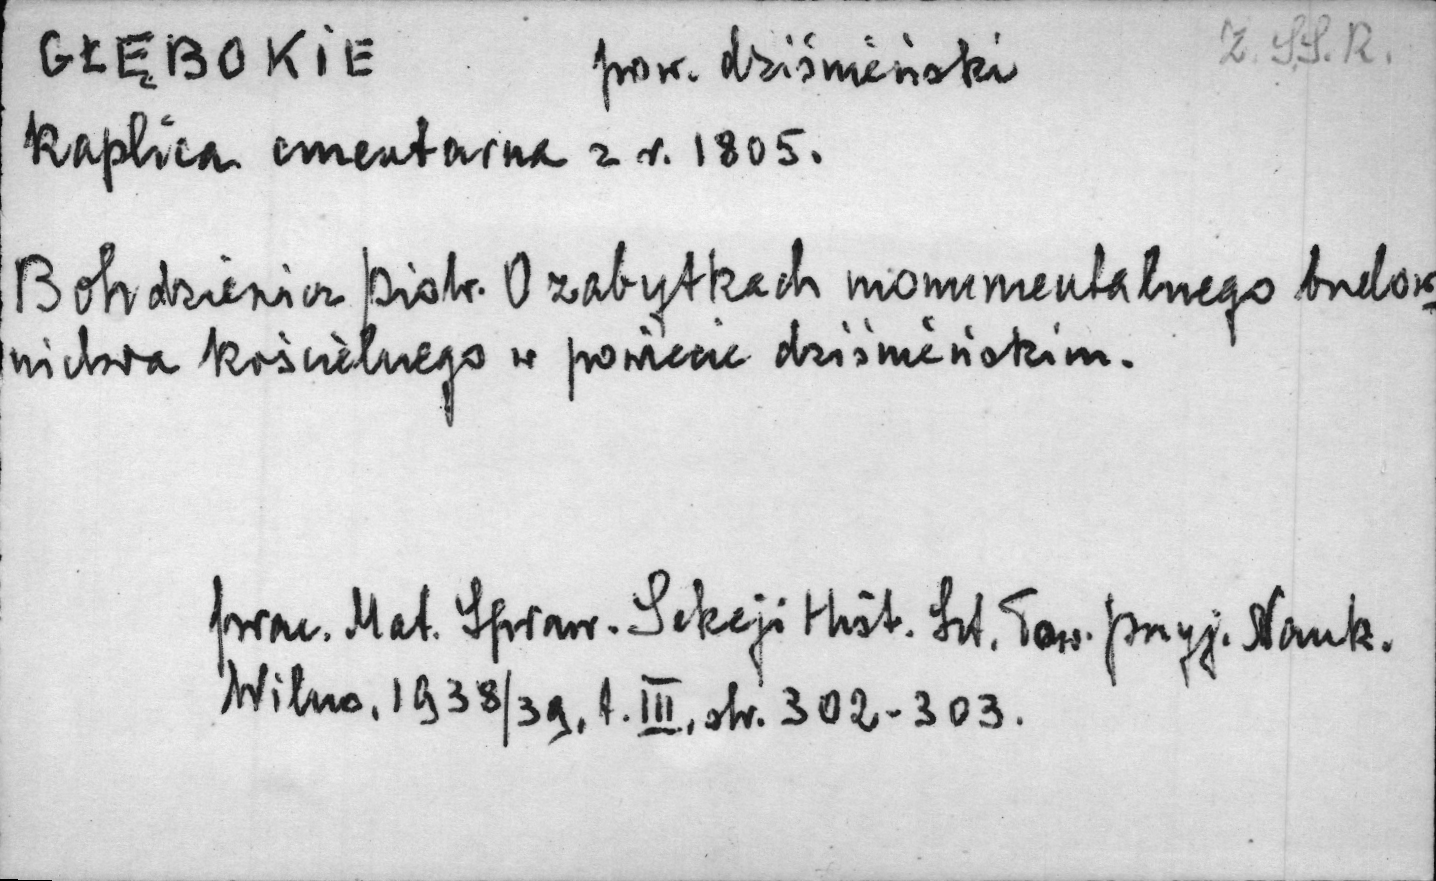 GŁĘBOKIE pow. dziśnieński Z.S.S.R.
Kaplica cmentarna z r. 1805.
Bohdziewicz Piotr. O zabytkach monumentalnego budow-
nictwa kościelnego w powiecie dziśnieńskim.
Prac. Mat. Spraw. Sekcji Hist. Szt. Tow. Przyj. Nauk.
Wilno, 1938/39, t. III, str. 302-303.